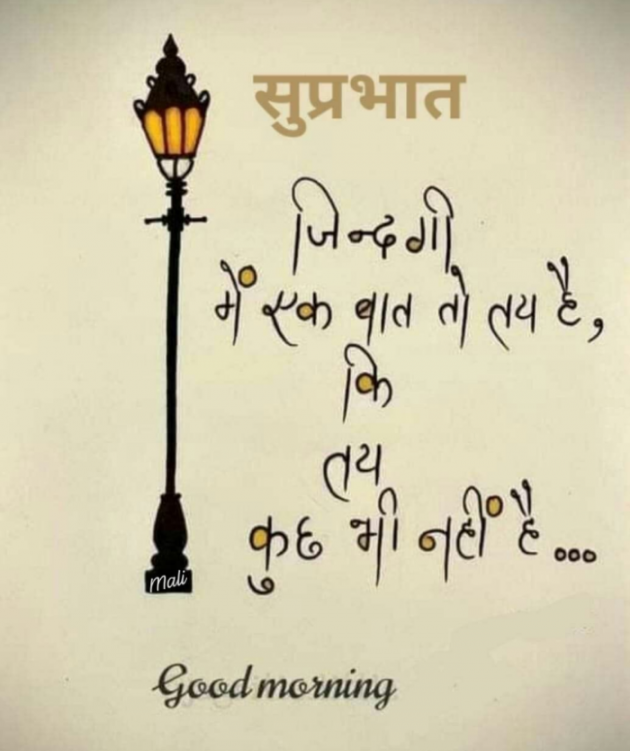 सुप्रभात
जिन्दगी
में एक बात तो तय है,
कि
तय
कुछ भी नहीं है...
Mali
Good morning